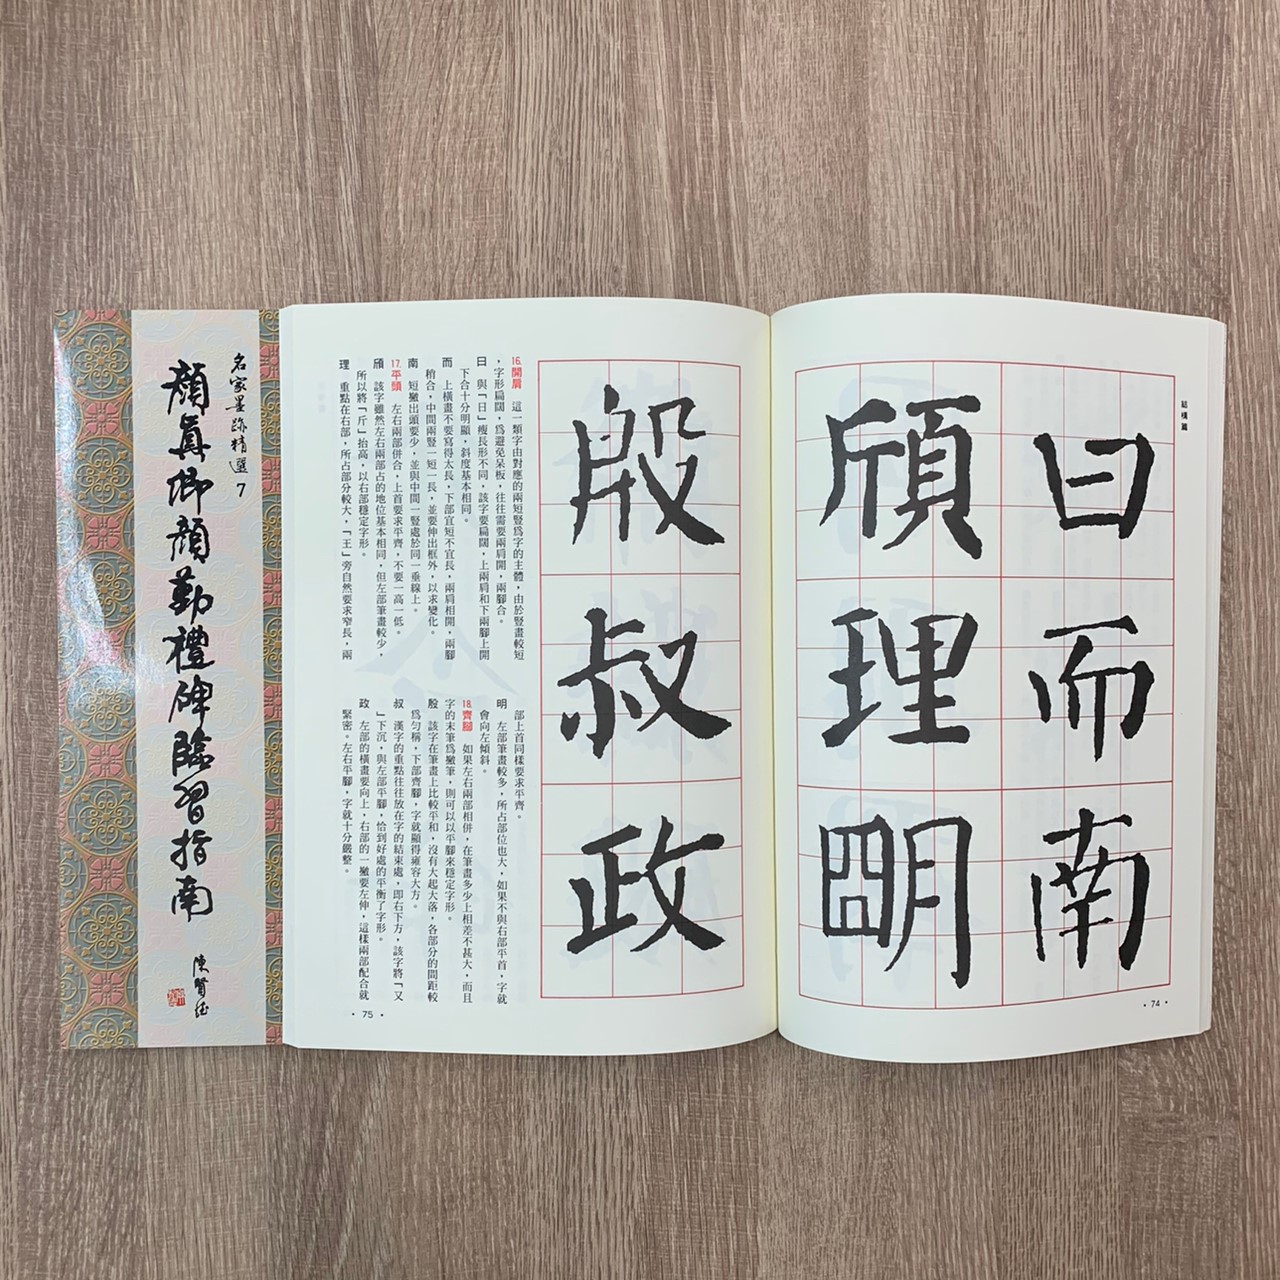 名家墨跡精選 7
顏真卿顏勤禮碑臨習指南
陳賢德
結構篇
曰而南
頎理明
• 74 •
殷叔政
16.開肩 這一類字由對應的兩短豎爲字的主體，由於豎畫較短
，字形扁闊，爲避免呆板，往往需要兩肩開，兩腳合。
曰 與「日」瘦長形不同，該字要扁闊，上兩肩和下兩腳上開
下合十分明顯，斜度基本相同。
而 上橫畫不要寫得太長，下部宜短不宜長，兩肩相開，兩腳
稍合，中間兩豎一短一長，並要伸出框外，以求變化。
南 短撇出頭要少，並與中間一豎處於同一垂線上。
17.平頭 左右兩部併合，上首要求平齊，不要一高一低。
頎 該字雖然左右兩部占的地位基本相同，但左部筆畫較少，
所以將「斤」抬高，以右部穩定字形。
理 重點在右部，所占部分較大，「王」旁自然要求窄長，兩
部上首同樣要求平齊。
明 左部筆畫較多，所占部位也大，如果不與右部平首，字就
會向左傾斜。
18.齊腳 如果左右兩部相併，在筆畫多少上相差不甚大，而且
字的末筆爲撇筆，則可以以平腳來穩定字形。
殷 該字在筆畫上比較平和，沒有大起大落，各部分的間距較
爲勻稱，下部齊腳，字就顯得雍容大方。
叔 漢字的重點往往放在字的結束處，即右下方，該字將「又
」下沉，與左部平腳，恰到好處的平衡了字形。
政 左部的橫畫要向上，右部的一撇要左伸，這樣兩部配合就
緊密。左右平腳，字就十分嚴整。
• 75 •